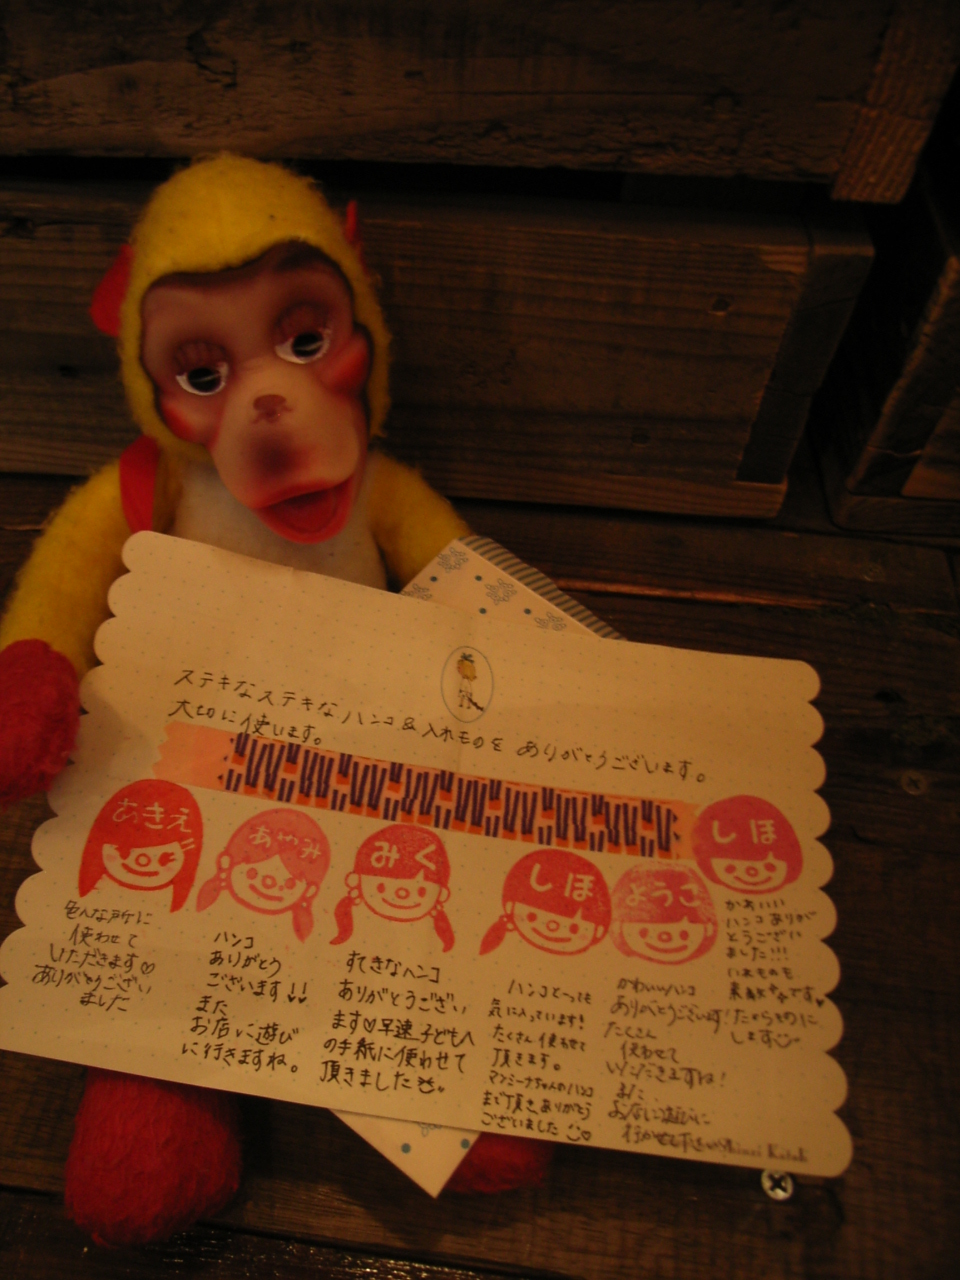 ステキなステキなハンコ&入れものを ありがとうございます。
大切に使います。
あきえ
色んな所に
使わせて
いただきます♡
ありがとうござい
ました
あやみ
ハンコ
ありがとう
ございます!!
また
お店に遊び
に行きますね。
みく
すてきなハンコ
ありがとうござい
ます♡早速子どもへ
の手紙に使わせて
頂きました
しほ
ハンコとっても
気に入っています!
たくさん使わせて
頂きます。
まで頂きありがとう
ございました
ようこ
かわいいハンコ
ありがとうございます!
たくさん
使わせて
いただきますね!
また
お店に遊びに
しほ
かわいい
ハンコありが
とうござい
ました!!!
いれものも
素敵です♥
たからものに
します